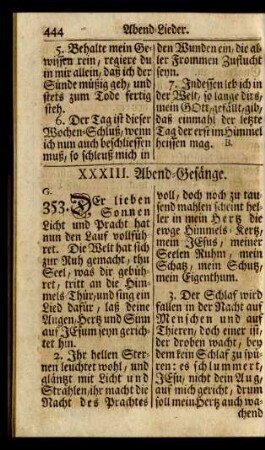 444 Abend-Lieder.
5. Behalte mein Ge-
wissen rein, regiere du
in mir allein, daß ich der
Sünde müßig geh, und
stets zum Tode fertig
steh.
6. Der Tag ist dieser
Wochen-Schluß, wenn
ich nun auch beschliessen
muß, so schleuß mich in
den Wunden ein, die al-
ler Frommen Zuflucht
seyn.
7. Indessen leb ich in
der Welt, so lange dirs,
mein GOtt, gefällt, gib,
daß einmahl der letzte
Tag der erst im Himmel
heissen mag. B.
XXXIII. Abend-Gesänge.
G.
353. DEr lieben
Sonnen
Licht und Pracht hat
nun den Lauf vollfüh-
ret. Die Welt hat sich
zur Ruh gemacht, thu
Seel, was dir gebüh-
ret, tritt an die Him-
mels Thür, und sing ein
Lied dafür, laß deine
Augen, Hertz und Sinn
auf JEsum seyn gerich-
tet hin.
2. Ihr hellen Ster-
nen leuchtet wohl, und
gläntzt mit Licht und
Strahlen, ihr macht die
Nacht des Prachtes
voll, doch noch zu tau-
send mahlen scheint hel-
ler in mein Hertz die
ewge Himmels Kertz,
mein JEsus, meiner
Seelen Ruhm, mein
Schatz, mein Schutz,
mein Eigenthum.
3. Der Schlaf wird
fallen in der Nacht auf
Menschen und auf
Thieren, doch einer ist,
der droben wacht, bey
dem kein Schlaf zu spü-
ren: es schlummert,
JEsu, nicht dein Aug,
auf mich gericht, drum
soll mein Hertz auch wa-
chend